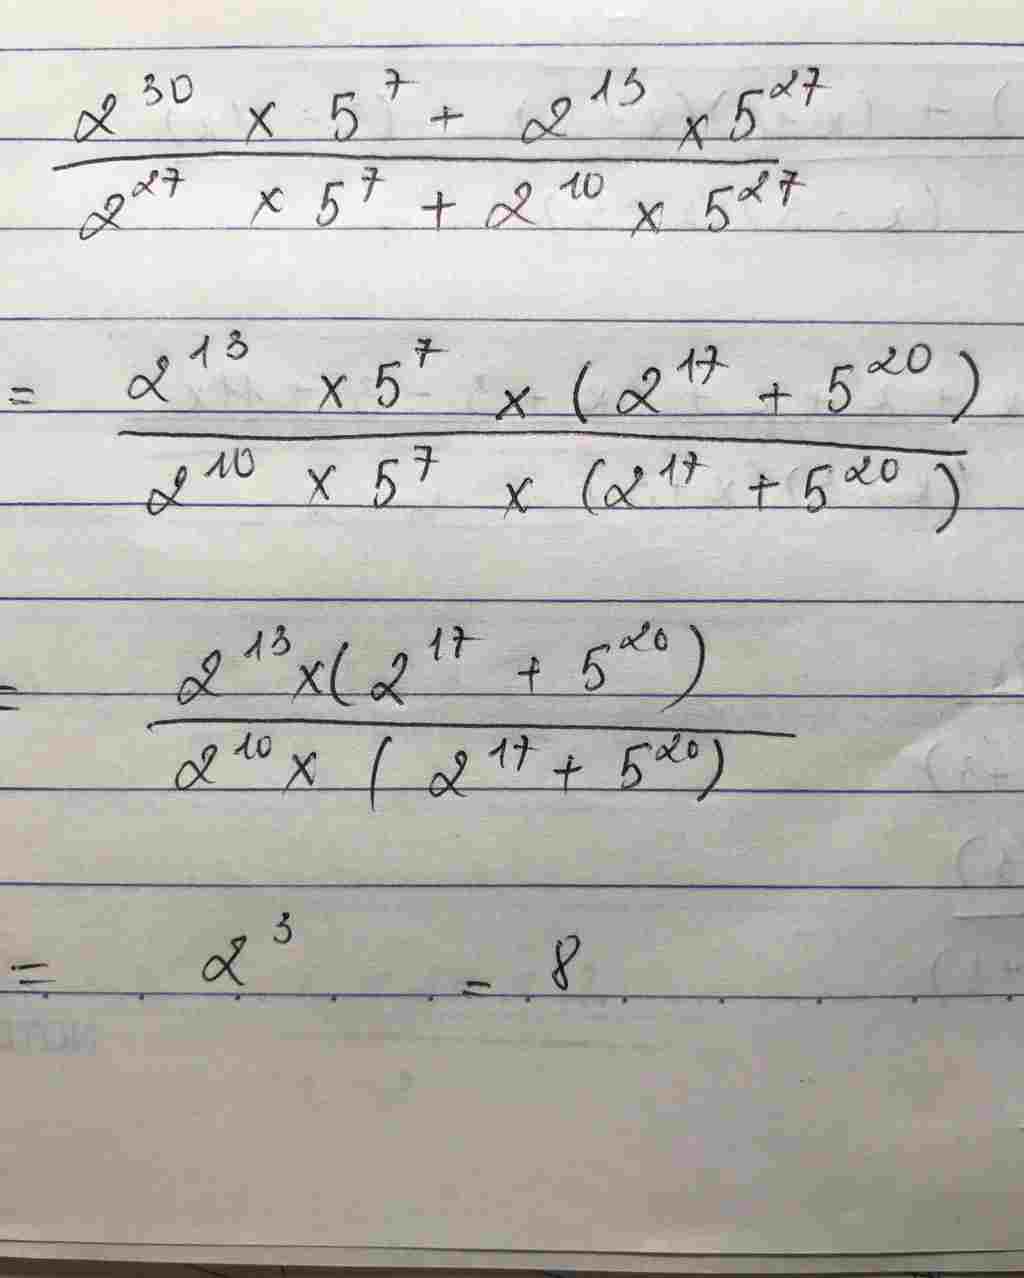 2^30 × 5^7 + 2^13 × 5^27
2^27 × 5^7 + 2^10 × 5^27
= 2^13 × 5^7 × (2^17 + 5^20)
2^10 × 5^7 × (2^17 + 5^20)
= 2^13 × (2^17 + 5^20)
2^10 × (2^17 + 5^20)
= 2^3 = 8